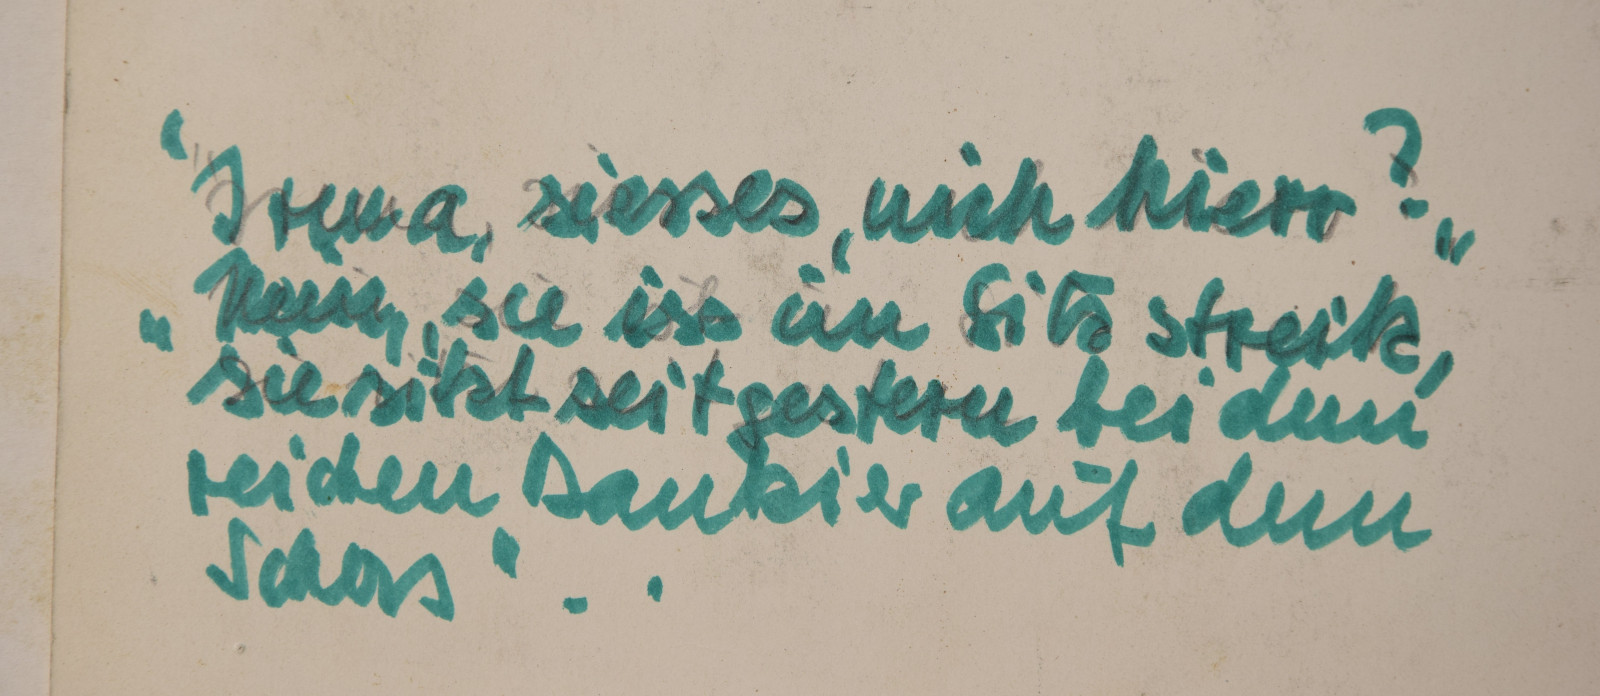 "Irema, siesses, nich hierr?"
"Nein, sie iss im Sitz streik,
sie sitzt seit gestern bei dem
reichen Bankier auf dem
Schoss"..